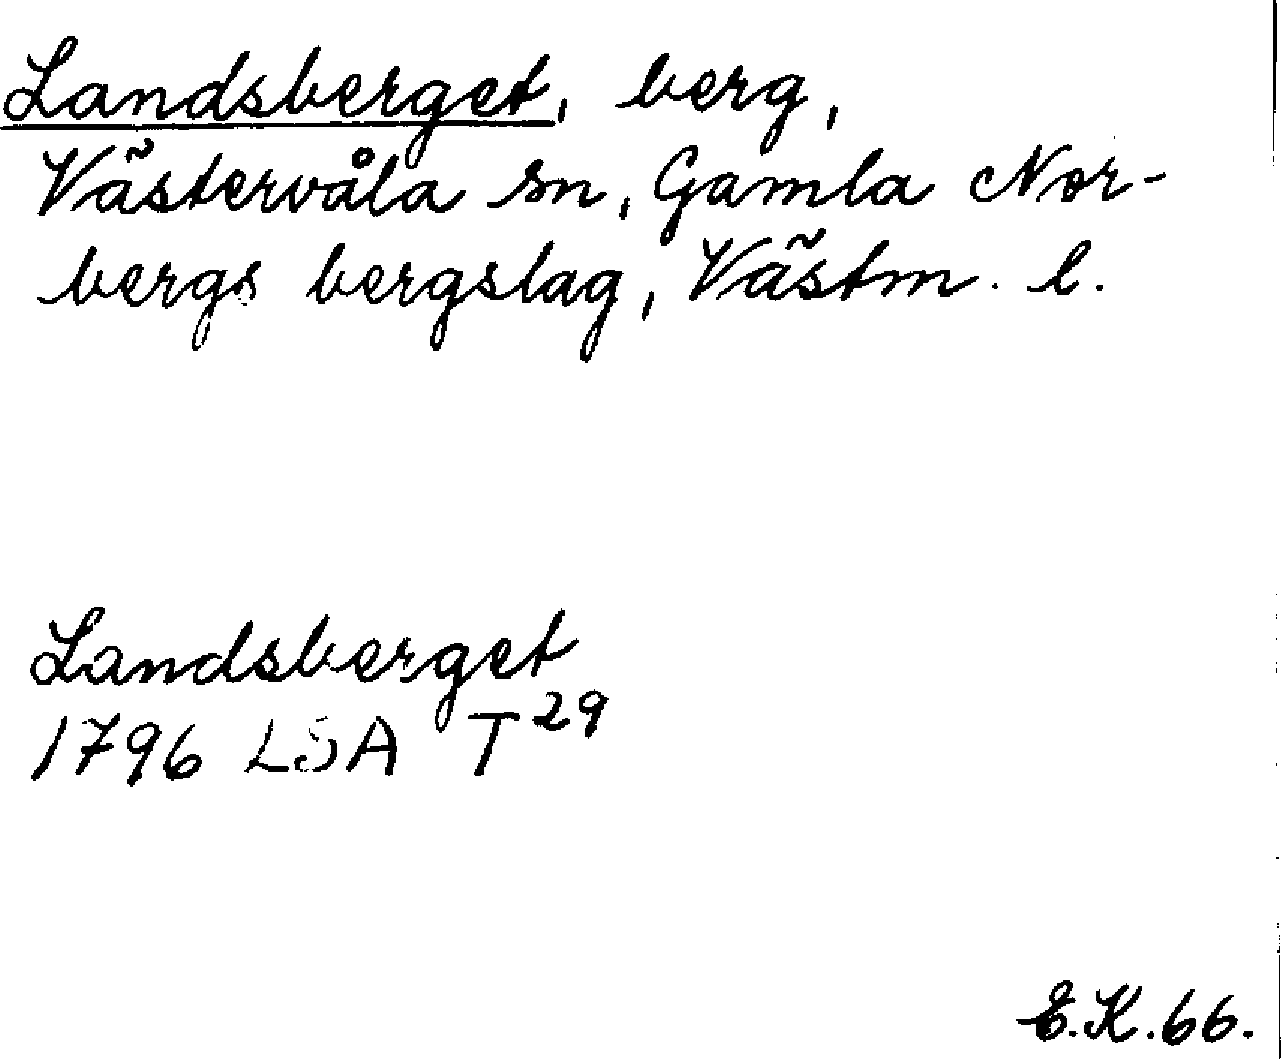 Landsberget, berg,
Västervåla sn, Gamla Nor-
bergs bergslag, Västm. l.
Landsberget
1796 LSA T29
E.K.66.